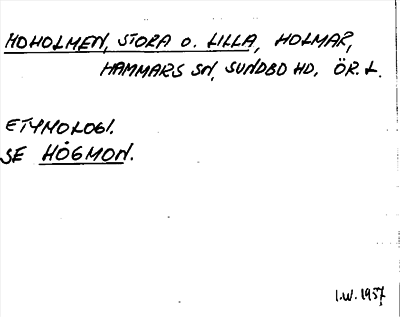 HOHOLMEN, STORA O. LILLA, HOLMAR,
HAMMARS SN, SUNDBO HD. ÖR. L.
ETYMOLOGI.
SE HÖGMON.
I.W. 1957